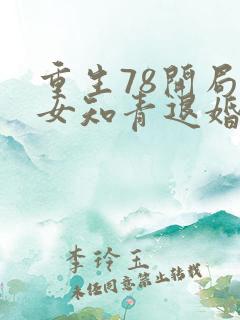 重生78开局
女知青退婚
李玲玉
未经同意禁止转载